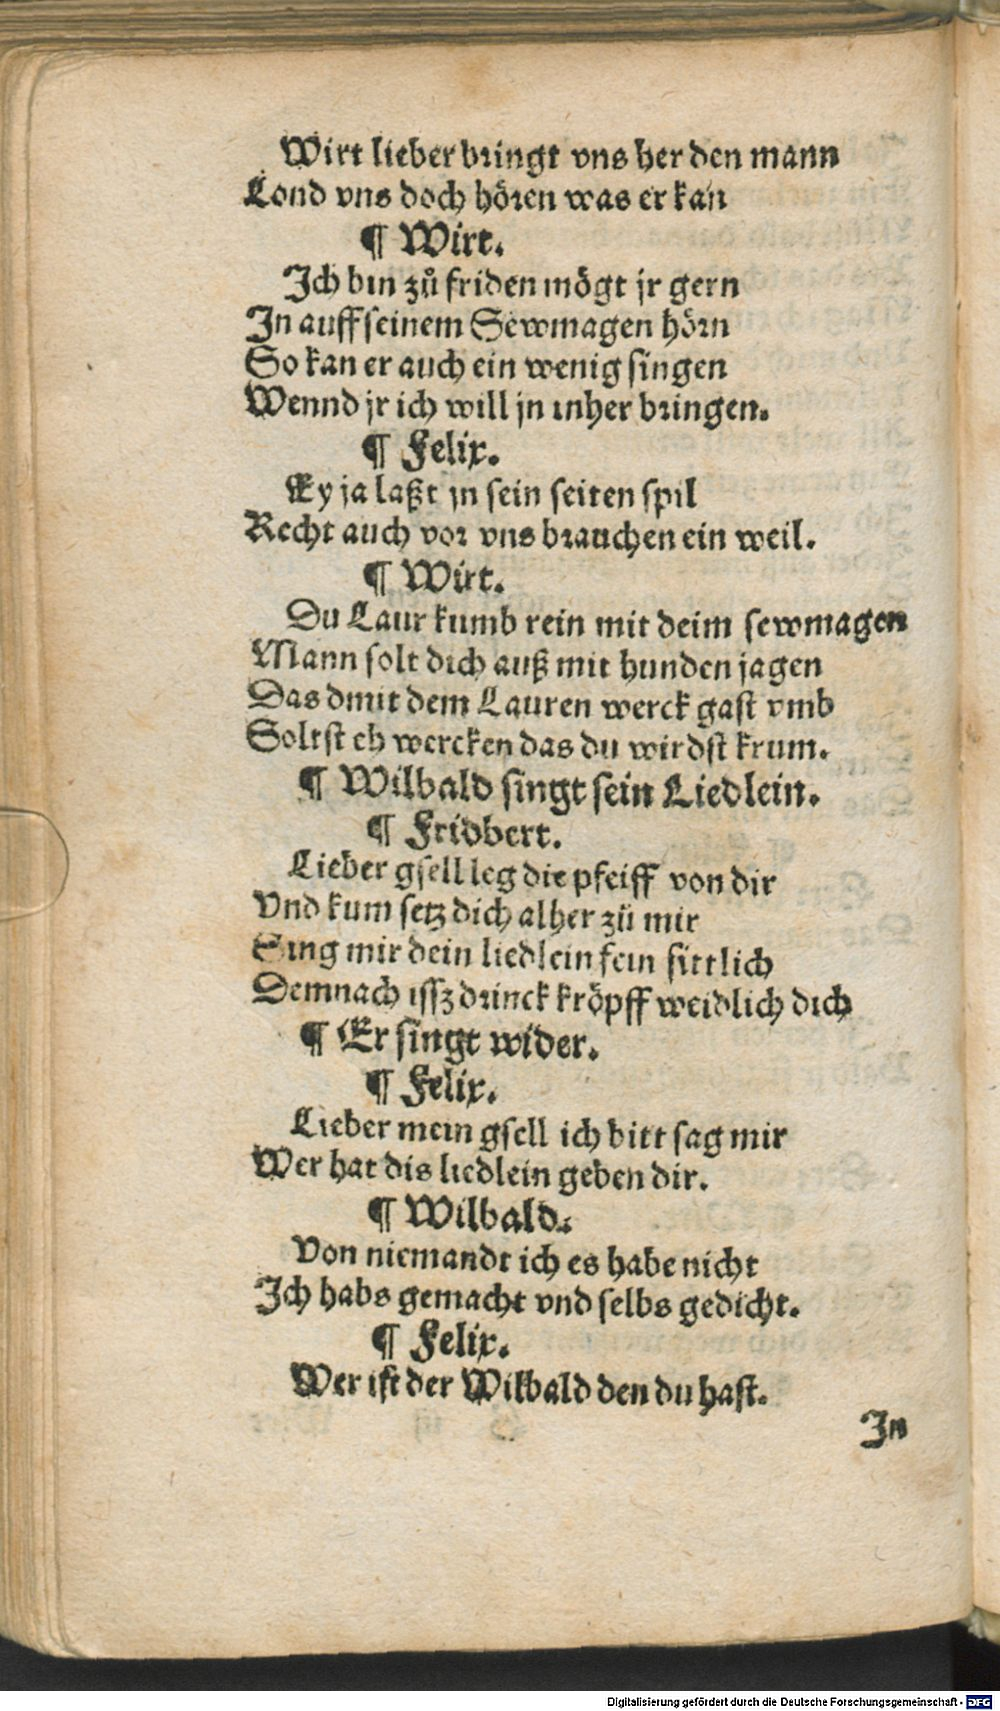 Wirt lieber bringt vns her den mann
Lond vns doch hören was er kan
¶ Wirt.
Ich bin zů friden mögt jr gern
In auff seinem Sewmagen hörn
So kan er auch ein wenig singen
Wennd jr ich will jn inher bringen.
¶ Felix.
Ey ja laßt jn sein seiten spil
Recht auch vor vns brauchen ein weil.
¶ Wirt.
Du Laur kumb rein mit deim sewmagen
Mann solt dich auß mit hunden jagen
Das dmit dem Lauren werck gast vmb
Soltst eh wercken das du wirdst krum.
¶ Wilbald singt sein Liedlein.
¶ Fridbert.
Lieber gsell leg die pfeiff von dir
Vnd kum setz dich alher zů mir
Sing mir dein liedlein fein sittlich
Demnach issz drinck kröpff weidlich dich
¶ Er singt wider.
¶ Felix.
Lieber mein gsell ich bitt sag mir
Wer hat dis liedlein geben dir.
¶ Wilbald.
Von niemandt ich es habe nicht
Ich habs gemacht vnd selbs gedicht.
¶ Felix.
Wer ist der Wilbald den du hast.
In
Digitalisierung gefördert durch die Deutsche Forschungsgemeinschaft - DFG